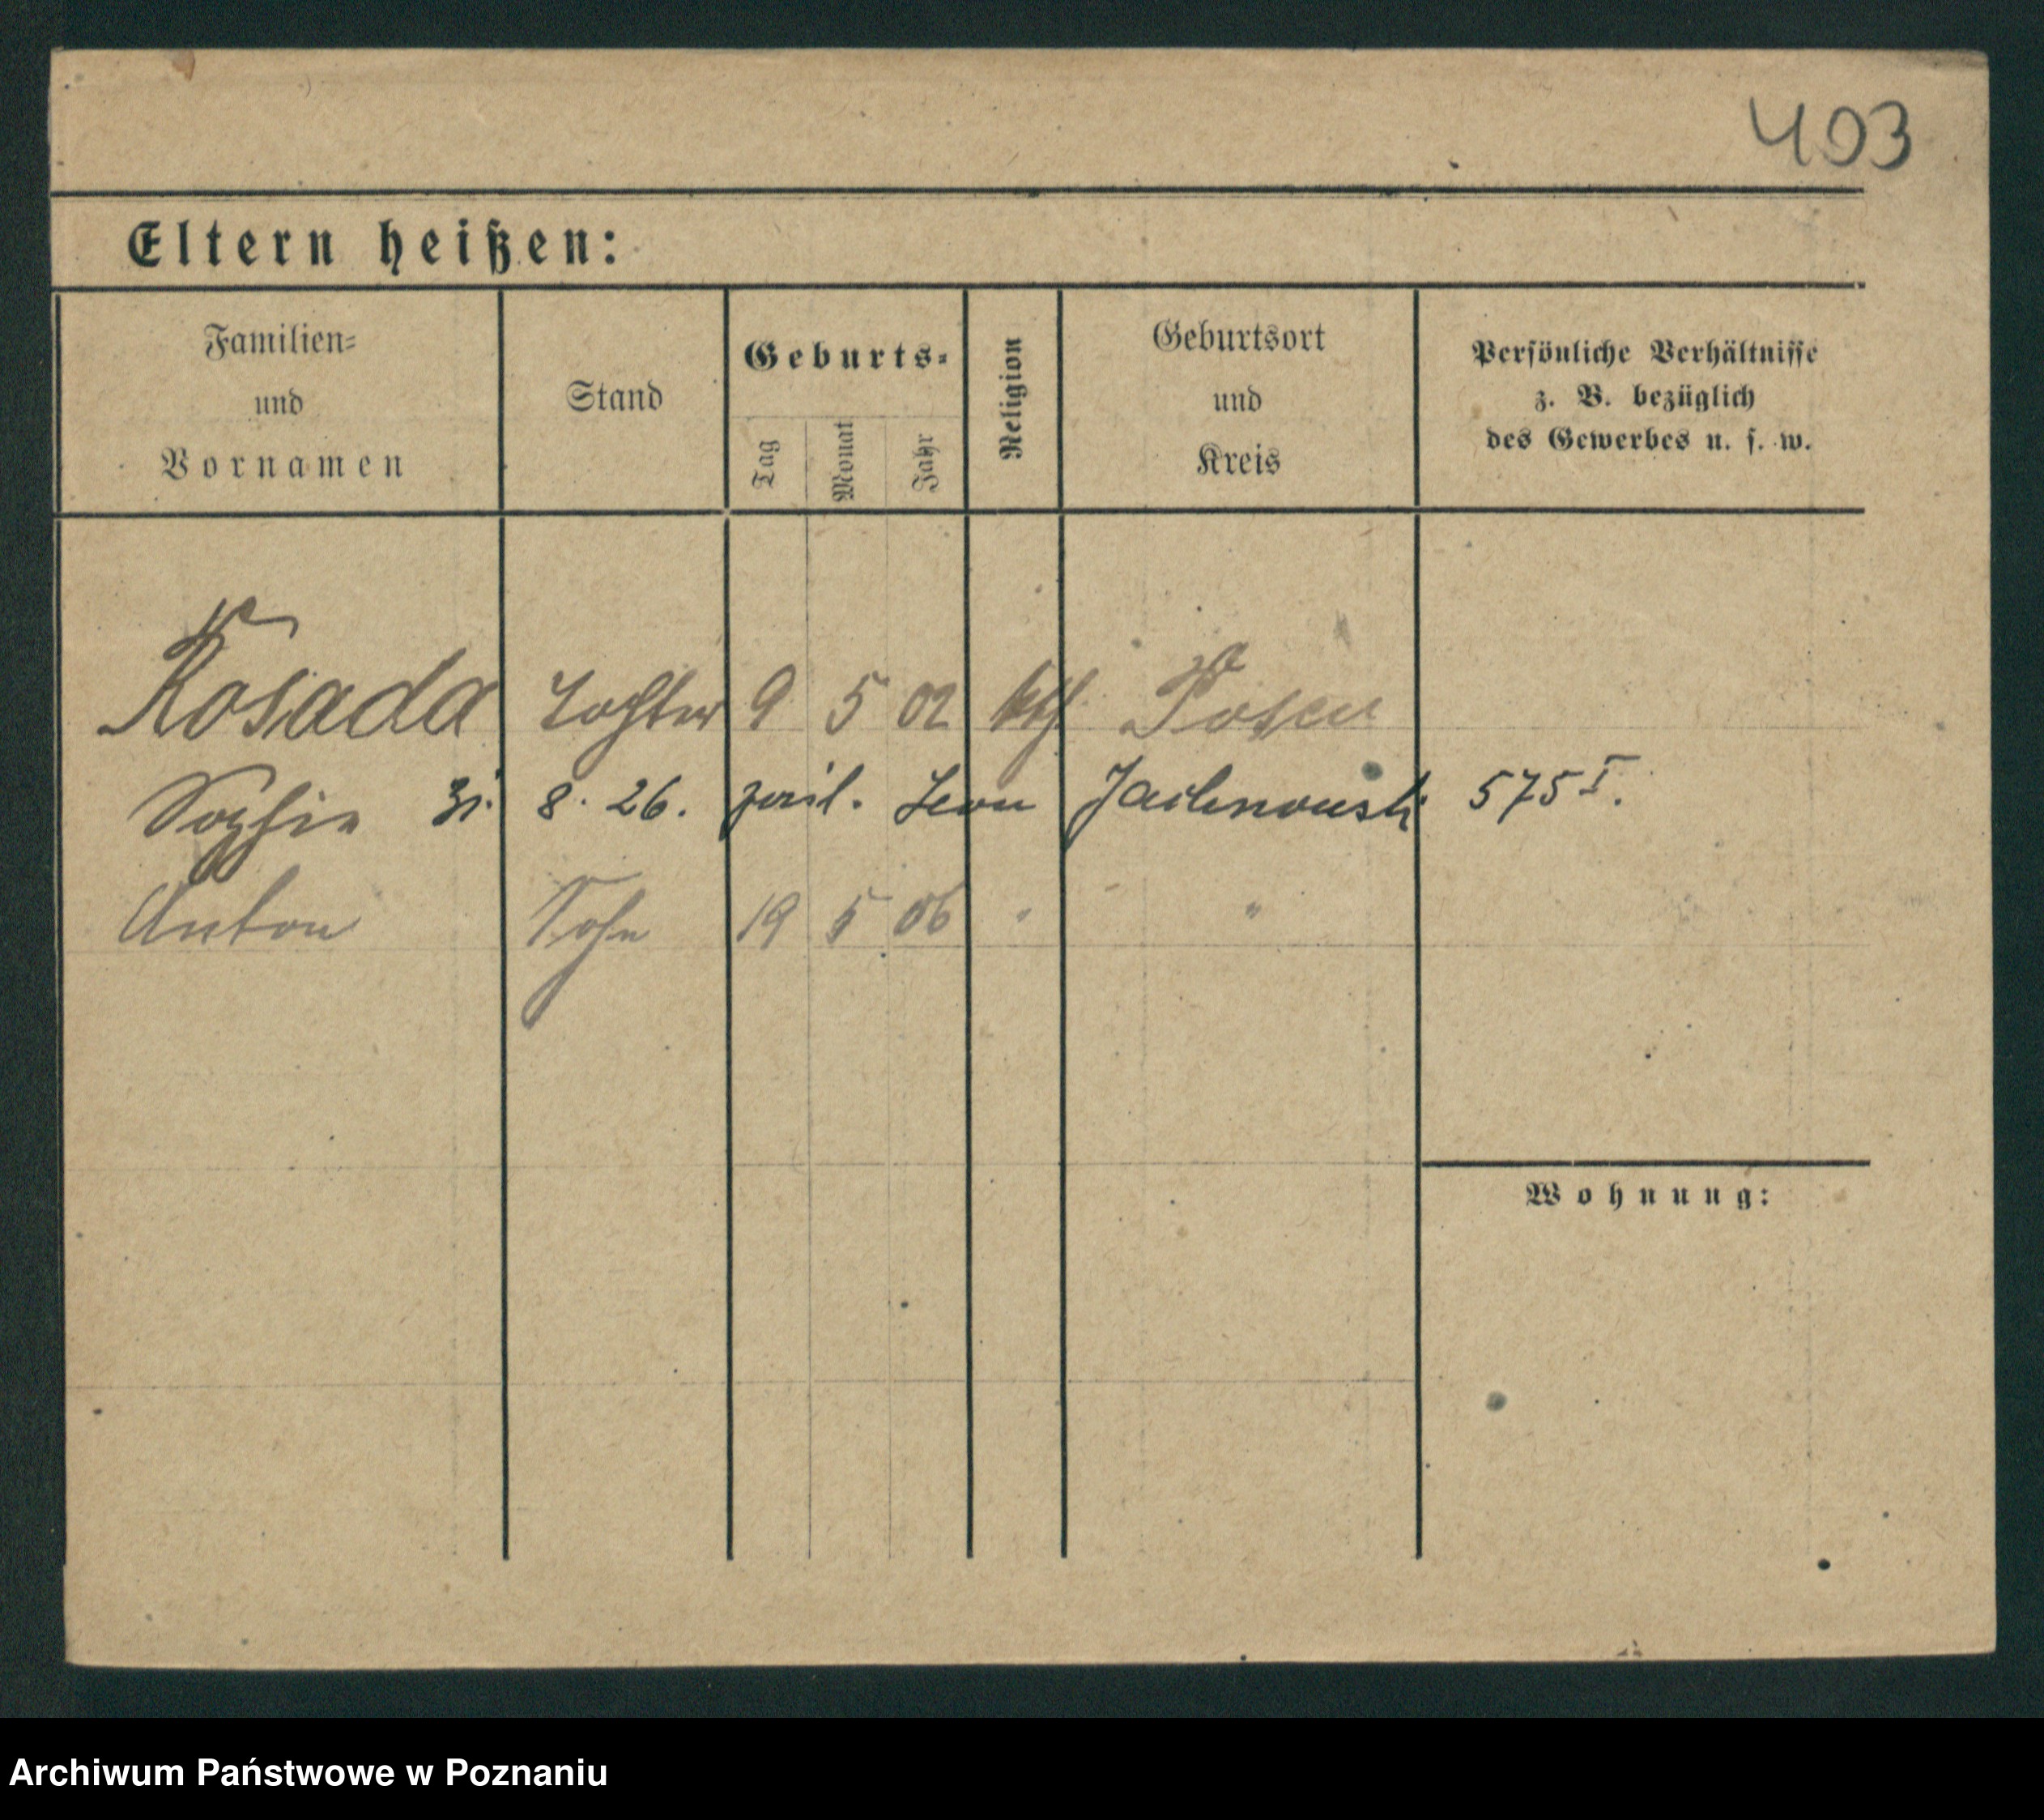 403
Eltern heißen:
Familien-
und
Vornamen
Stand
Geburts-
Tag
Monat
Jahr
Religion
Geburtsort
und
Kreis
Persönliche Verhältnisse
z. B. bezüglich
des Gewerbes u. s. w.
Kosada Tochter 9 5 02 kth Posen
Sophie 31. 8. 26. Leon 575 I.
Anton Sohn 19 5 06 " "
Wohnung:
Archiwum Państwowe w Poznaniu